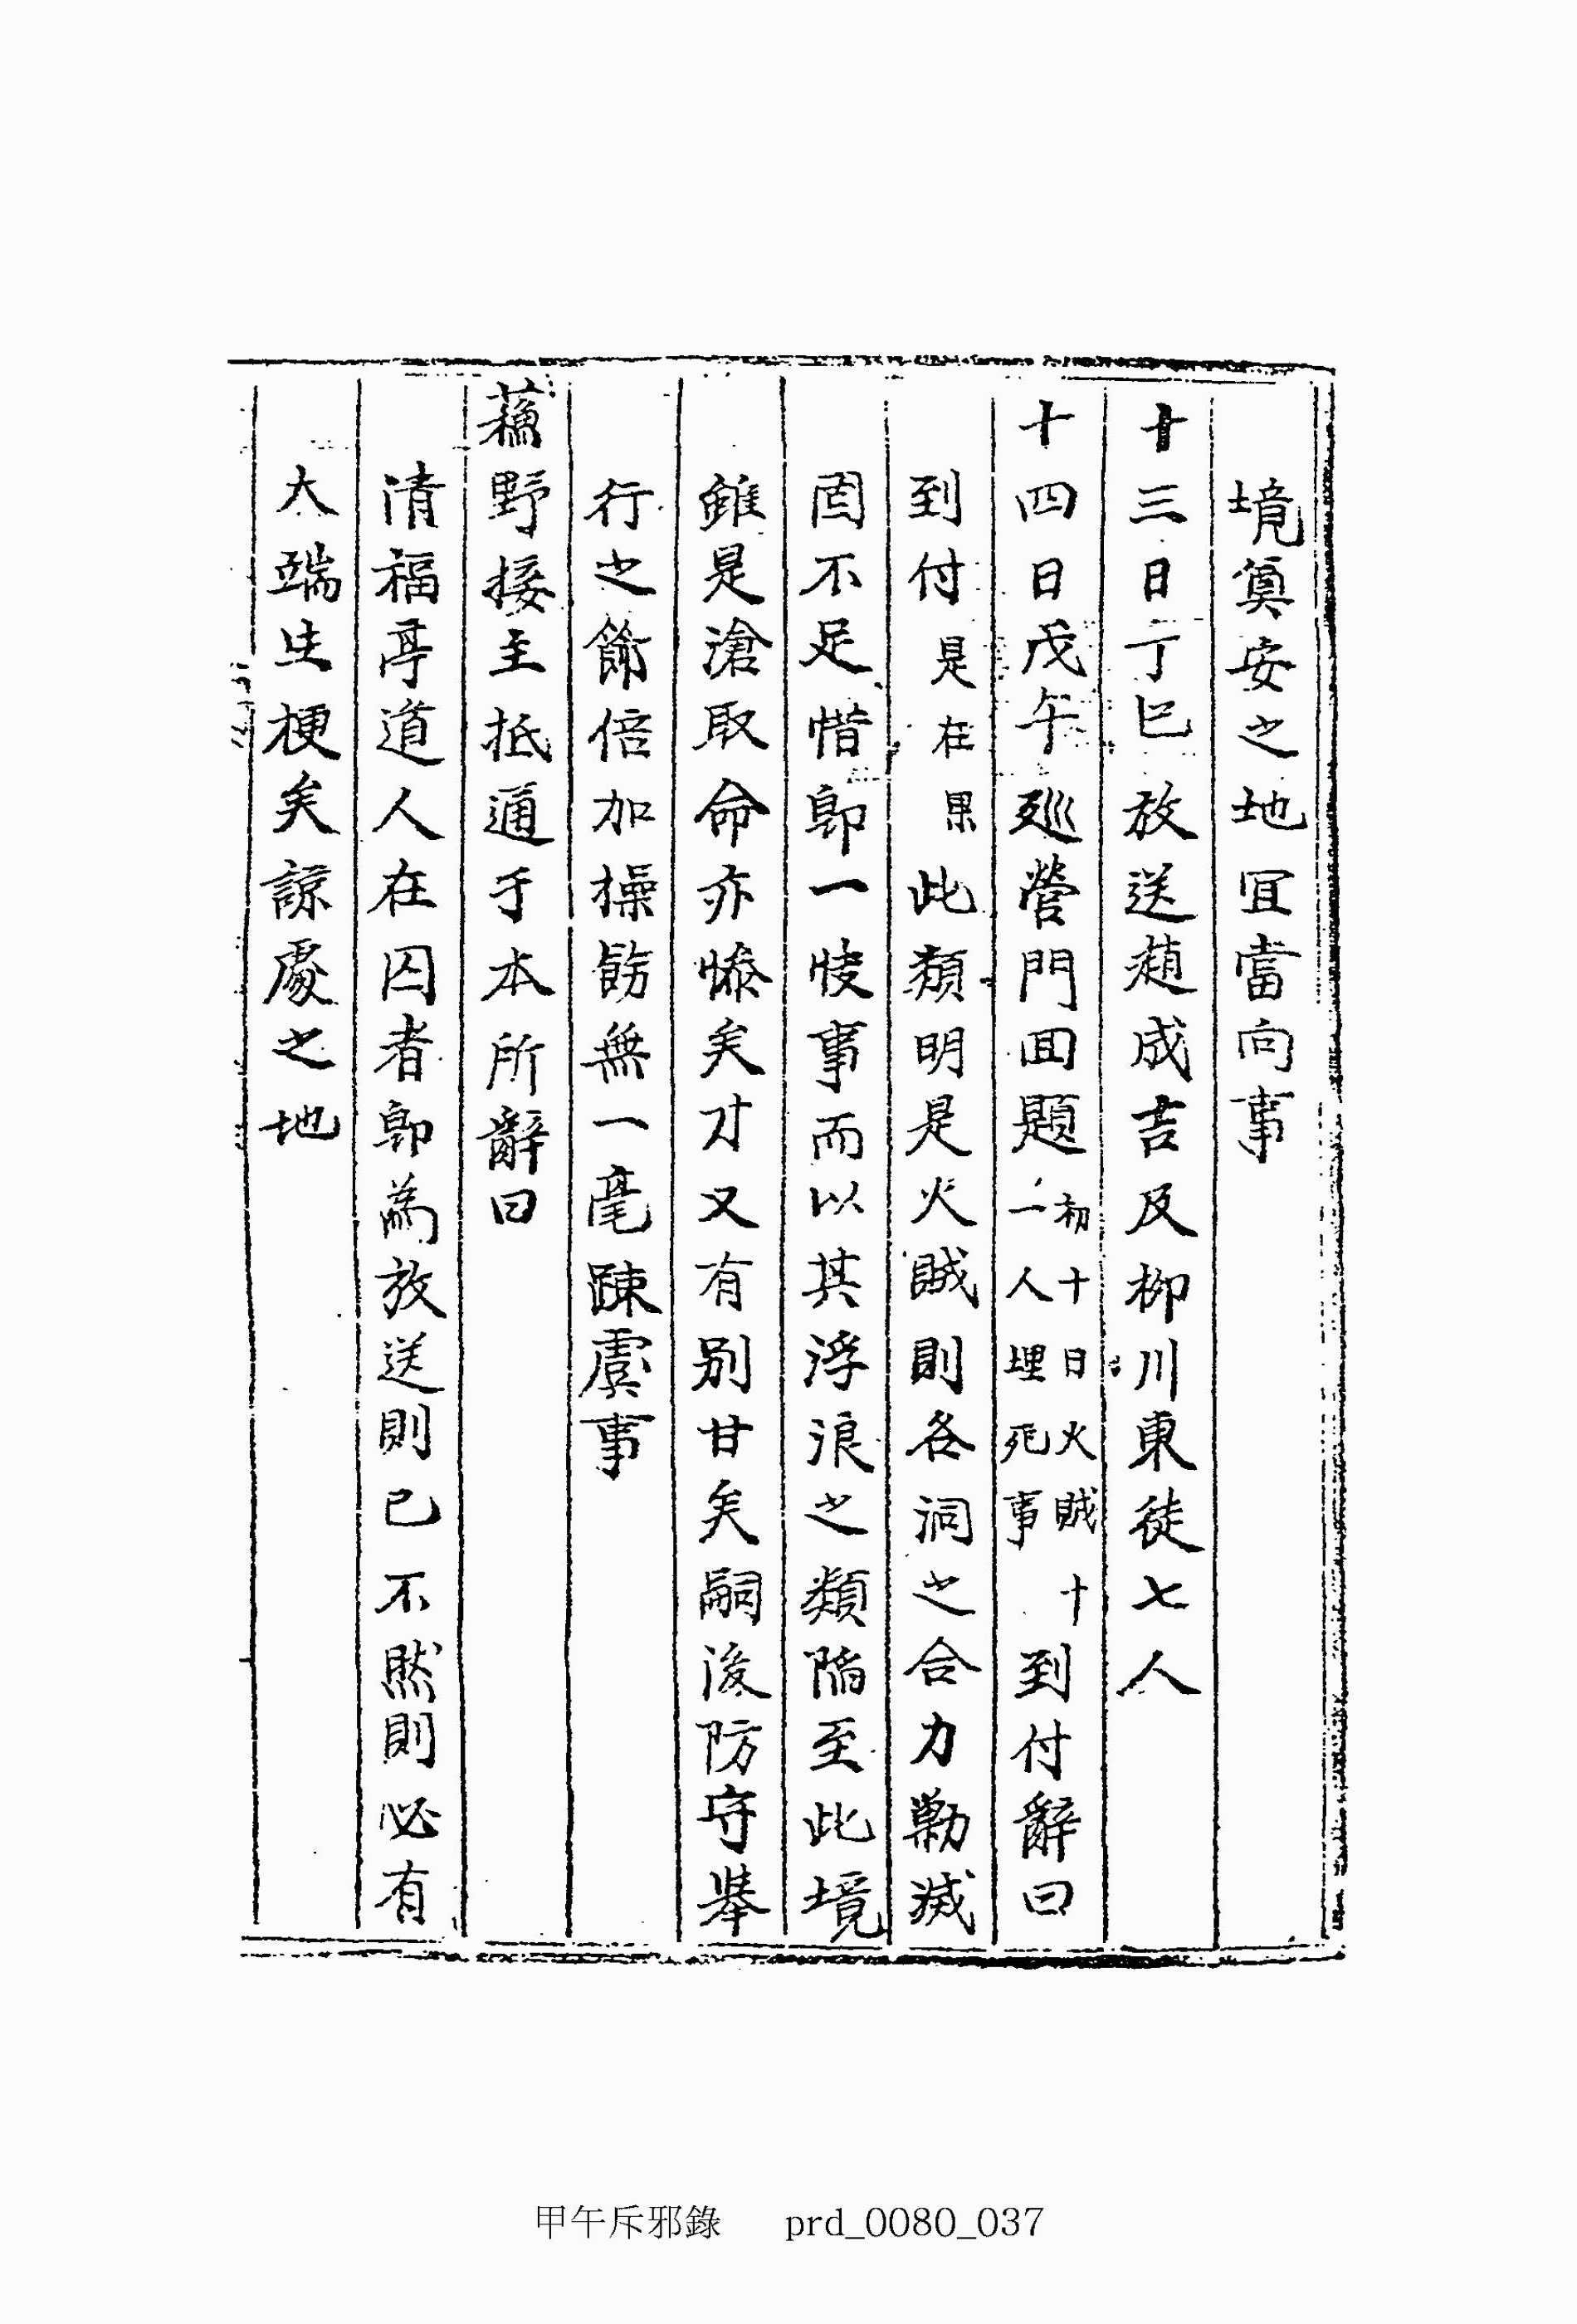 境奠安之地冝當向事
十三日丁巳放送趙成吉及柳川東徒七人
十四日戊午廵營門回題初十日火賊十一人埋死事到付辭曰
到付是在果此類明是火賊則各洞之合力勦滅
固不足惜卽一快事而以其浮浪之類陷至此境
雖是滄取命亦慘矣才又有別甘矣嗣後防守擧
行之節倍加操飭無一毫踈虞事
蘓野接主抵通于本所辭曰
清福亭道人在囚者卽為放送則已不然則必有
大端生梗矣諒處之地
甲午斥邪錄 prd_0080_037